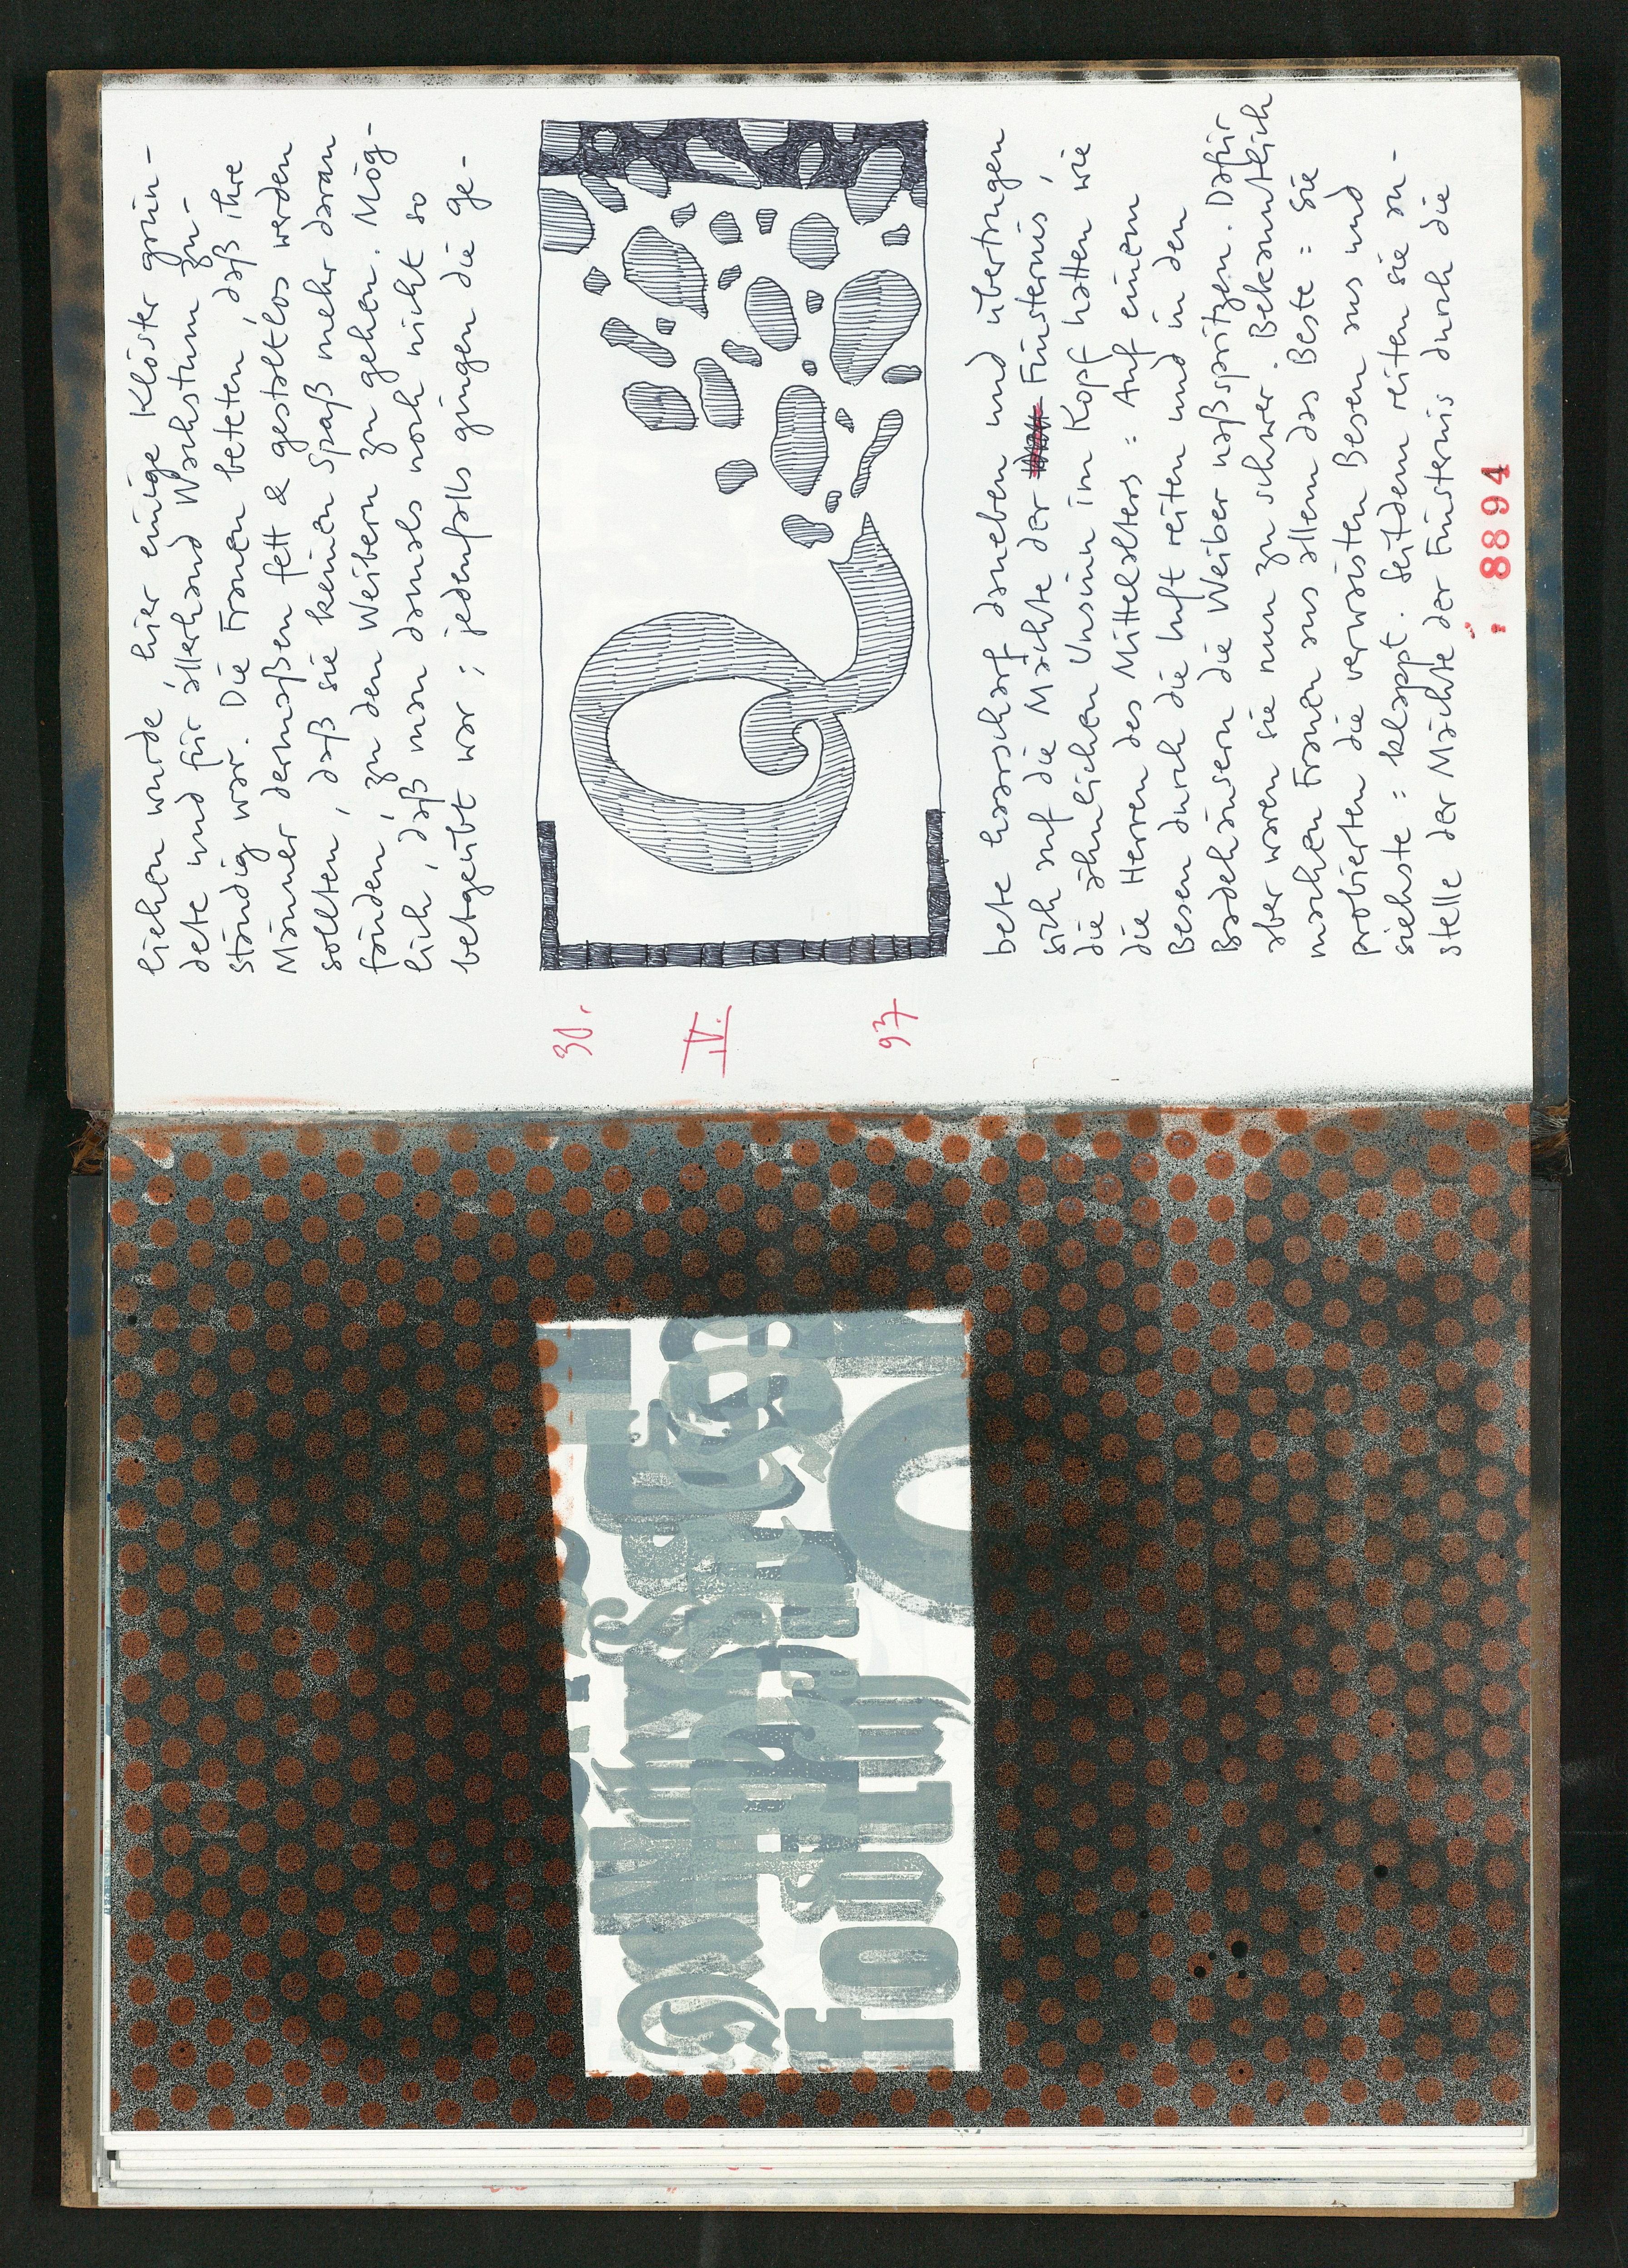 liehen wurde, hier einige Klöster grün-
dete und für allerhand Wachstum zu-
ständig war. Die Frauen beteten, daß ihre
Männer dermaßen fett & gestaltlos werden
sollten, daß sie keinen Spaß mehr daran
fänden, zu den Weibern zu gehen. Mög-
lich, daß man damals noch nicht so
betgeübt war; jedenfalls gingen die ge-
30.
IV.
97
bete haarscharf daneben und übertrugen
sich auf die Mächte der Finsternis,
die ähnlichen Unsinn im Kopf hatten wie
die Herren des Mittelalters: Auf einem
Besen durch die Luft reiten und in den
Badehäusern die Weiber naßspritzen. Dafür
aber waren sie nun zu schwer. Bekanntlich
machen Frauen aus allem das Beste: Sie
probierten die verwaisten Besen aus und
siehste: klappt. Seitdem reiten sie an-
stelle der Mächte der Finsternis durch die
8894